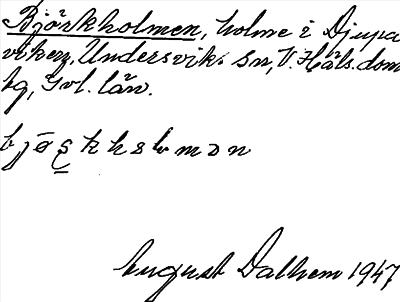 Björkholmen, holme i Djupa
viken, Undersviks sn, V. Häls. dom
sg, Gvl. län.
August Dalhem 1947